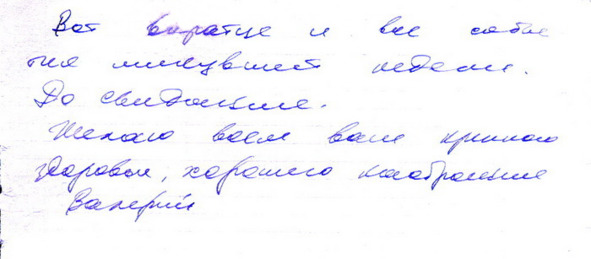 Вот вкратце и все собы
тия минувшей недели.
До свидания.
Желаю всем вам крепкого
здоровья, хорошего настроения
Валерий